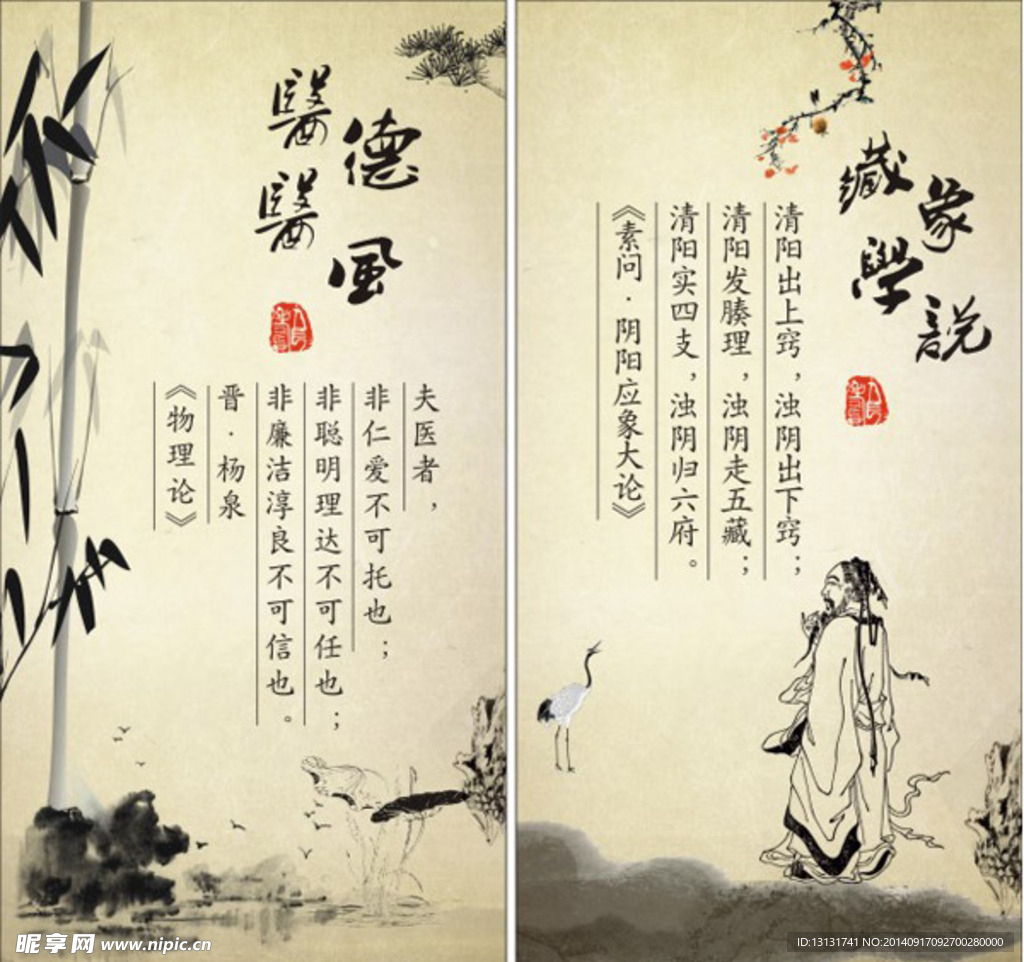 醫德
醫風
夫医者，
非仁爱不可托也；
非聪明理达不可任也；
非廉洁淳良不可信也。
晋·杨泉
《物理论》
藏象學説
清阳出上窍，浊阴出下窍；
清阳发腠理，浊阴走五藏；
清阳实四支，浊阴归六府。
《素问·阴阳应象大论》
昵享网 www.nipic.cn
ID:13131741 NO:20140917092700280000